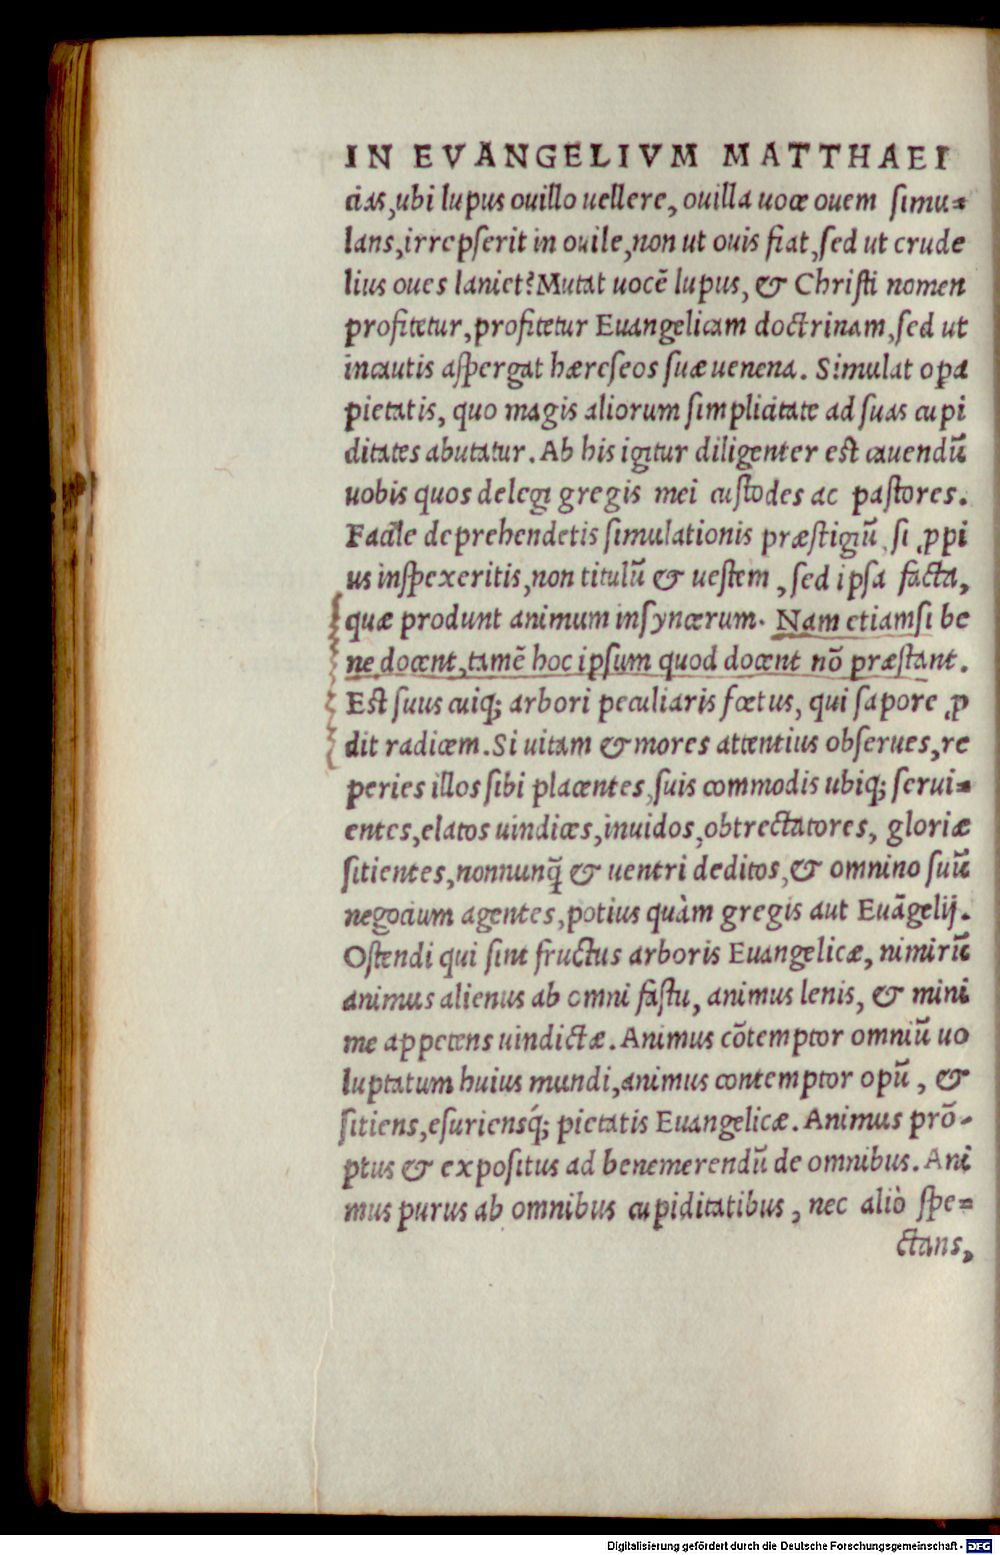 IN EVANGELIVM MATTHAEI
cias, ubi lupus ouillo uellere, ouilla uoce ouem simu=
lans, irrepserit in ouile, non ut ouis fiat, sed ut crude
lius oues laniet? Mutat uocē lupus, & Christi nomen
profitetur, profitetur Euangelicam doctrinam, sed ut
incautis aspergat hæreseos suæ uenena. Simulat opa
pietatis, quo magis aliorum simplicitate ad suas cupi
ditates abutatur. Ab his igitur diligenter est cauendū
uobis quos delegi gregis mei custodes ac pastores.
Facile deprehendetis simulationis præstigiū, si ꝓpi
us inspexeritis, non titulū & uestem, sed ipsa facta,
quæ produnt animum insyncerum. Nam etiamsi be
ne docent, tamē hoc ipsum quod docent nō præstant.
Est suus cuiq; arbori peculiaris fœtus, qui sapore ꝓ
dit radicem. Si uitam & mores attentius obserues, re
peries illos sibi placentes, suis commodis ubiq; serui=
entes, elatos uindices, inuidos, obtrectatores, gloriæ
sitientes, nonnunq̄ & uentri deditos, & omnino suū
negocium agentes, potius quàm gregis aut Euāgelij.
Ostendi qui sint fructus arboris Euangelicæ, nimirū
animus alienus ab omni fastu, animus lenis, & mini
me appetens uindictæ. Animus cōtemptor omniū uo
luptatum huius mundi, animus contemptor opū, &
sitiens, esuriensq́; pietatis Euangelicæ. Animus prō-
ptus & expositus ad benemerendū de omnibus. Ani
mus purus ab omnibus cupiditatibus, nec aliò spe=
ctans,
Digitalisierung gefördert durch die Deutsche Forschungsgemeinschaft - DFG